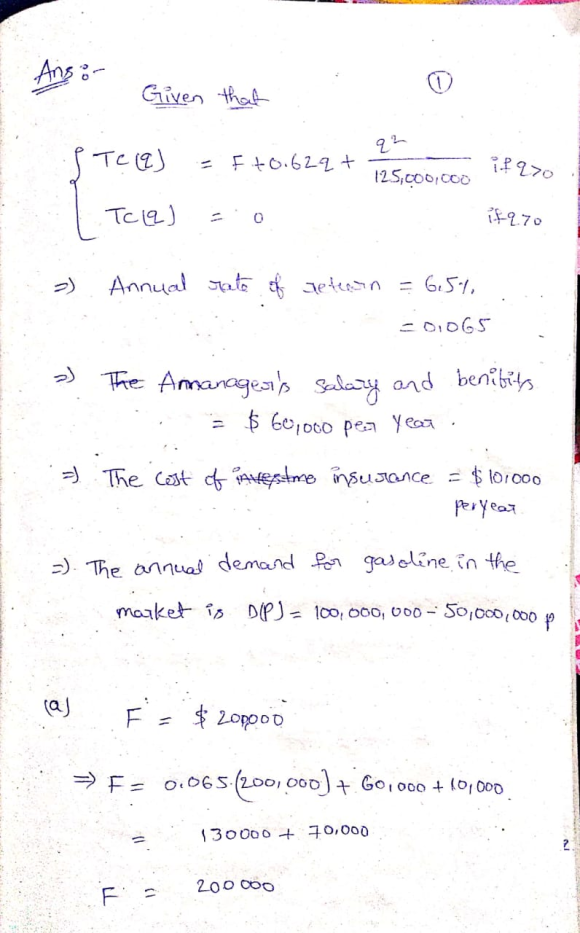 Ans :-
①
Given that
TC(q) = F + 0.62q + q² / 125,000,000 if q>0
TC(q) = 0 if q70
=) Annual rate of return = 6.5%
= 0.065
=) The Amanager's salary and benibits
= $ 60,000 per year.
=) The cost of investme insurance = $ 10,000
per year
=) The annual demand for gasoline in the
market is D(P) = 100,000,000 - 50,000,000 p
(a) F = $ 200000
=> F = 0.065 (200,000) + 60,000 + 10,000
= 130000 + 70,000
F = 200000